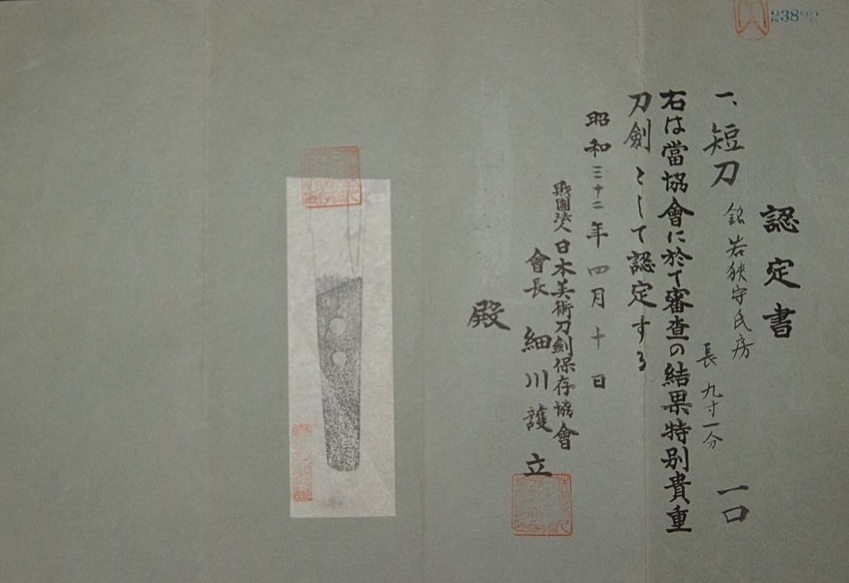 認定書
一、短刀 銘 若狭守氏房 長 九寸一分 一口
右は當協會に於て審査の結果特別貴重
刀劍として認定する
昭和三十二年四月十日
財團法人日本美術刀劍保存協會
會長 細川護立
殿